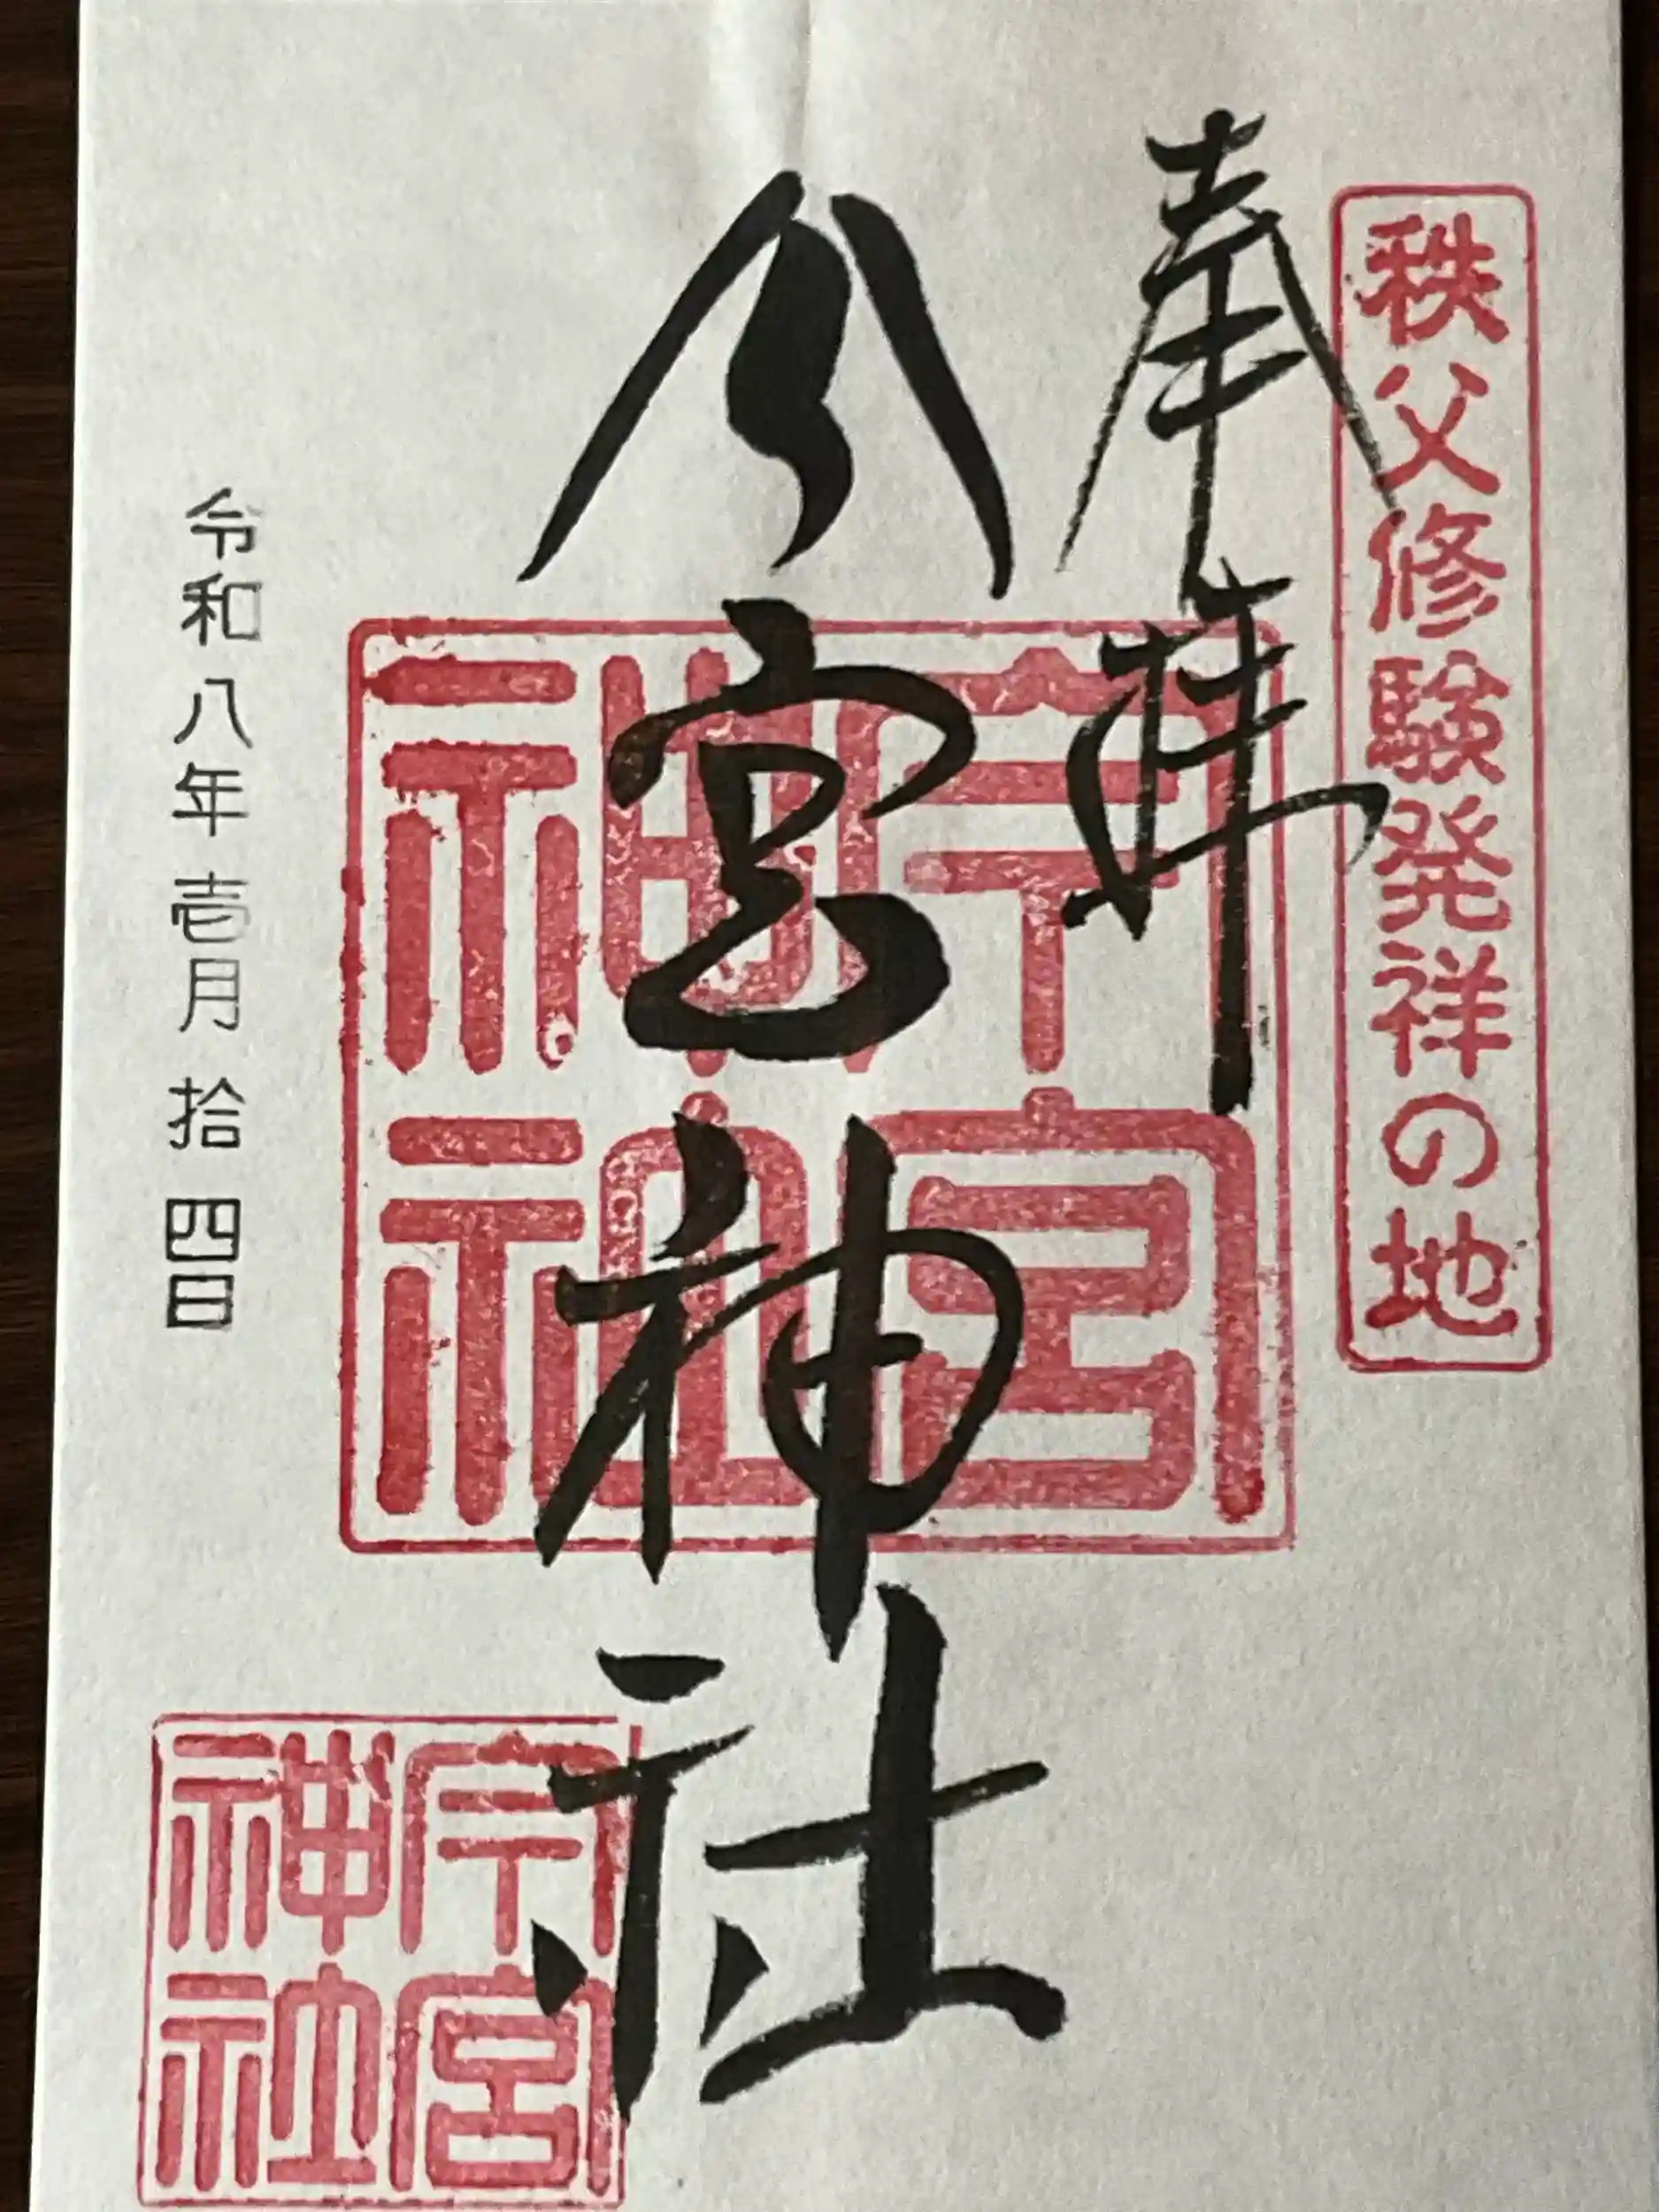 秩父修験発祥の地
奉拝
今宮神社
今宮
神社
令和八年壱月拾四日
今宮
神社